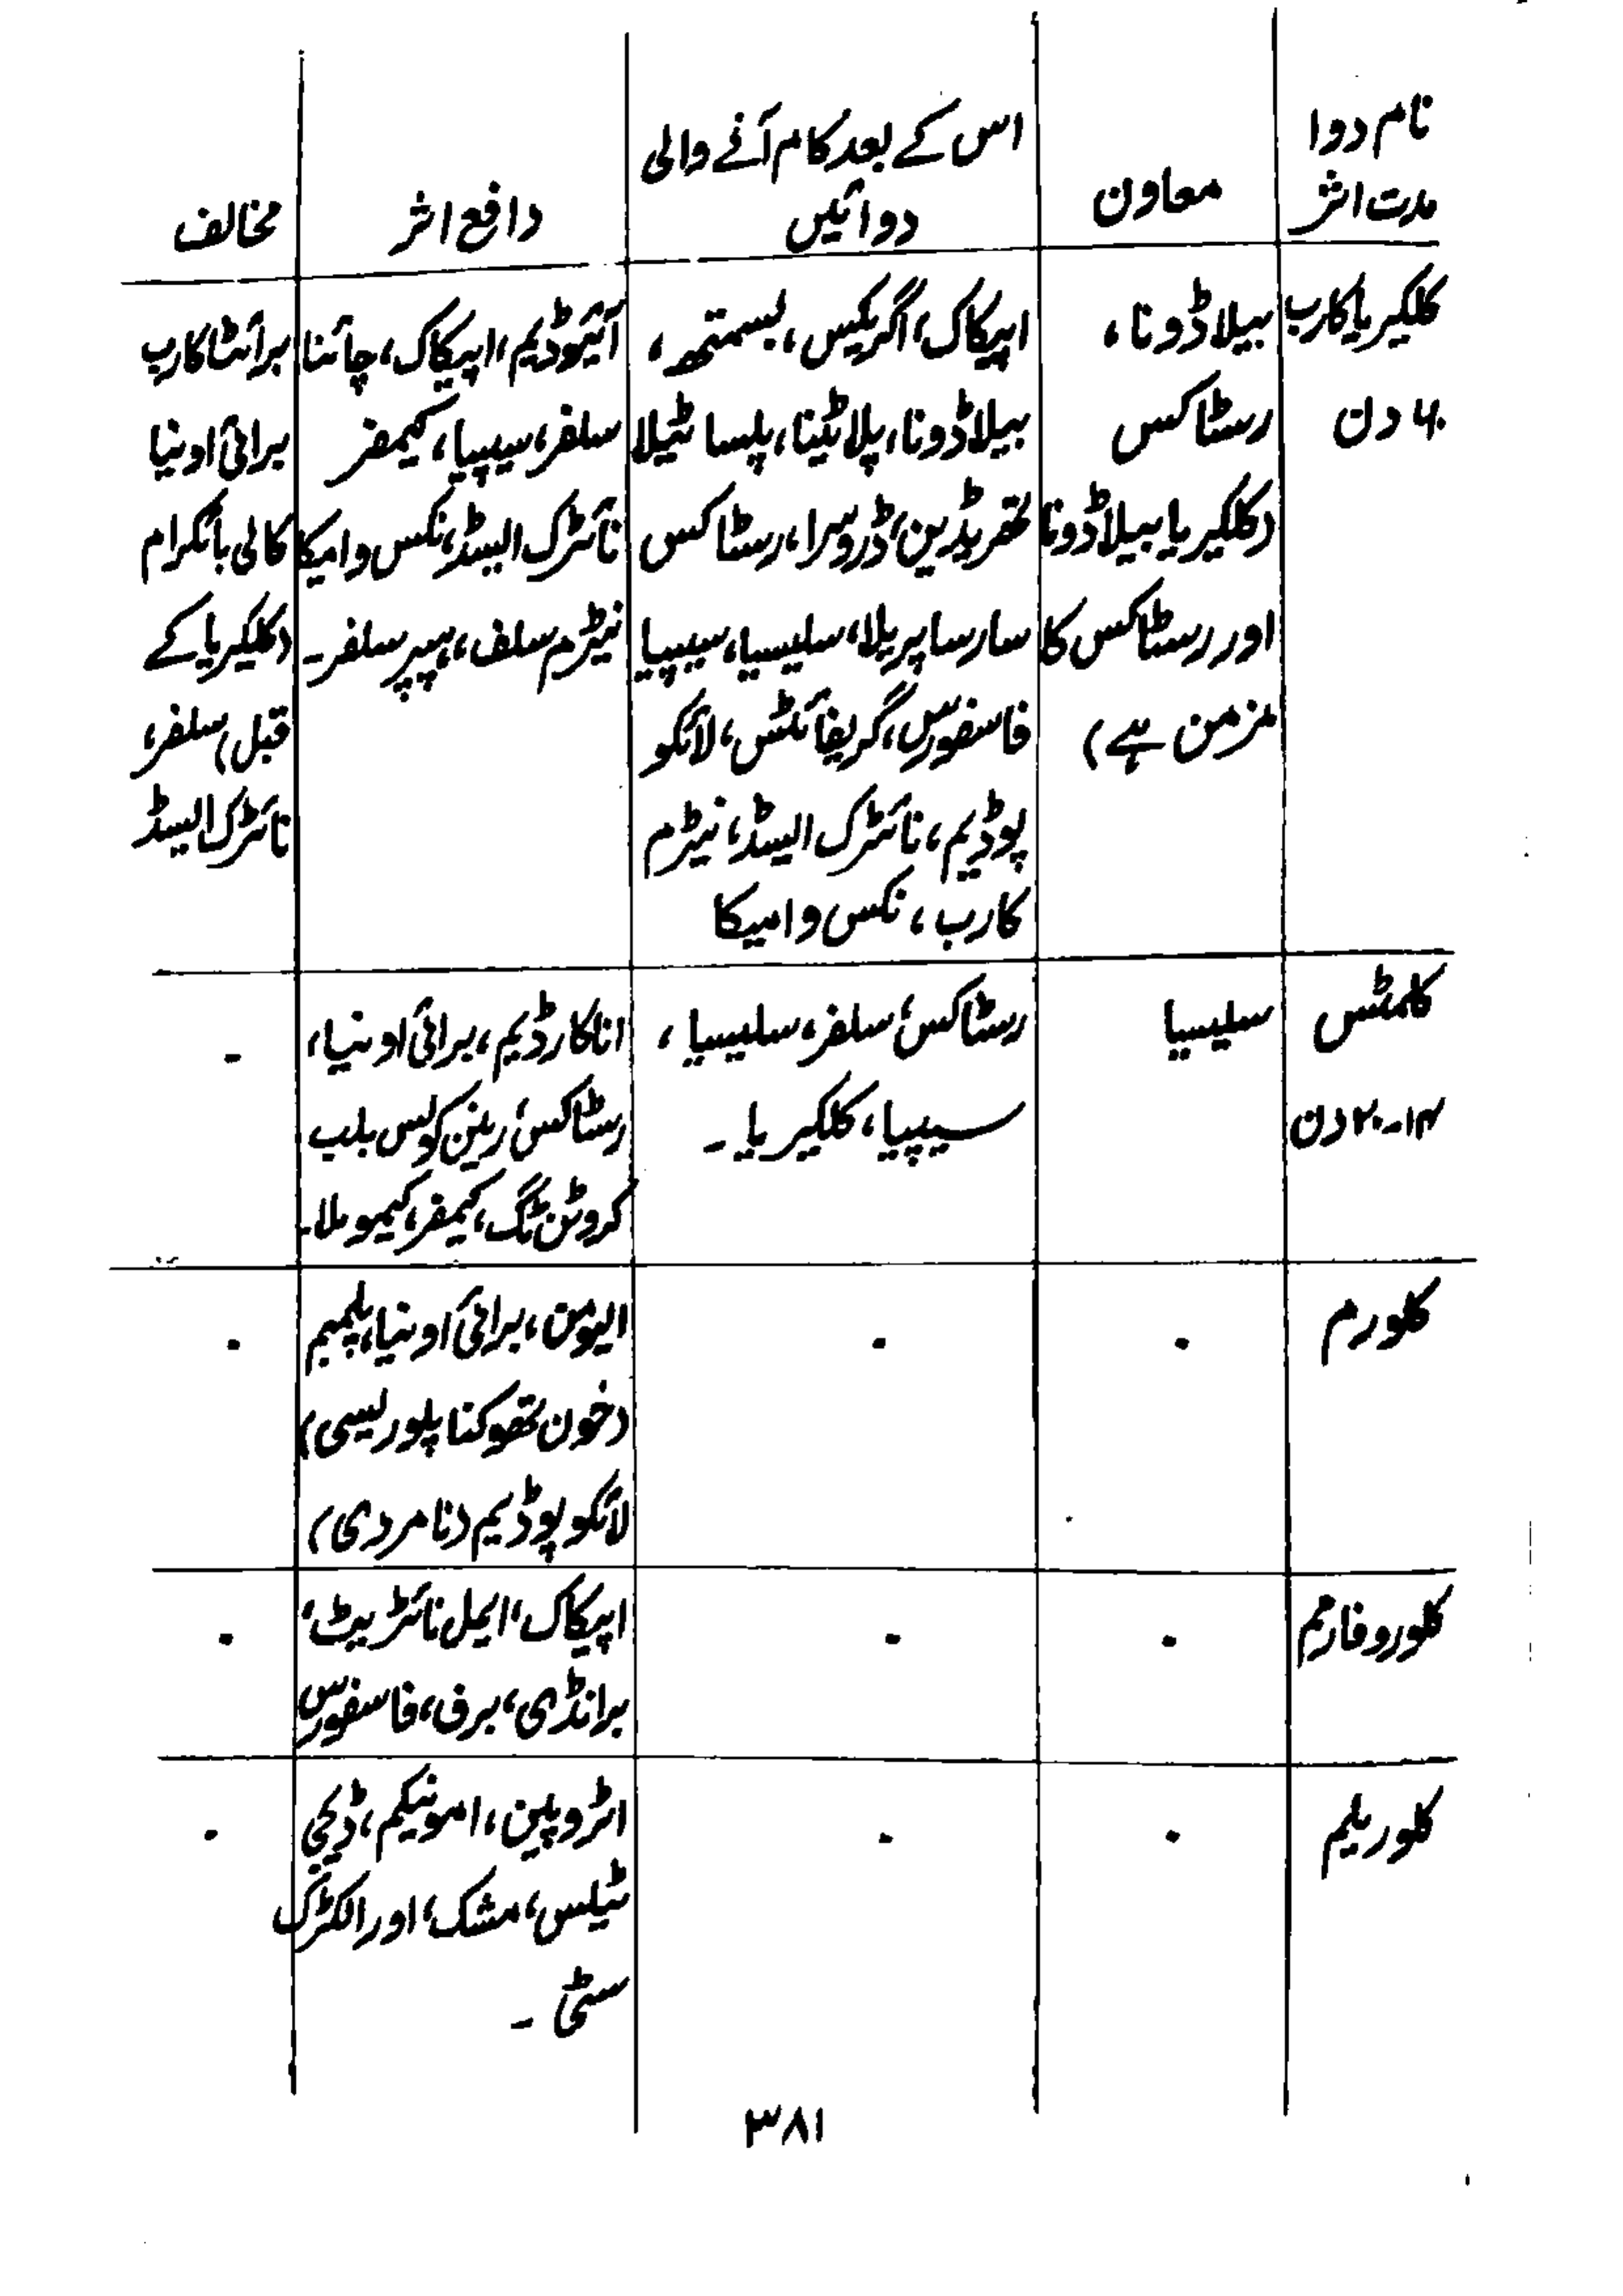 نام دوا
مدت اثر
معاون
اس کے بعد کام آنے والی
دوائیں
دافع اثر
مخالف
کلکیریا کارب
۶۰ دن
بیلاڈونا،
رسٹاکس
(کلکیریا بیلاڈونا
اور رسٹاکس کا
مزمن ہے)
اپیکاک، اگریکس، بسمتھ،
بیلاڈونا، پلاٹینا، پلساٹیلا
تھریڈین، ڈروسرا، رسٹاکس
سارساپریلا، سلیسیا، سیپیا
فاسفورس، گریفائٹس، لائکو
پوڈیم، نائٹرک ایسڈ، نیٹرم
کارب، نکس وامیکا
آئیوڈیم، اپیکاک، چائنا
سلفر، سیپیا، کیمفر
نائٹرک ایسڈ، نکس وامیکا
نیٹرم سلف، ہیپر سلفر۔
برائٹا کارب
برائی اونیا
کالی بائکرام
(کلکیریا کے
قبل) سلفر،
نائٹرک ایسڈ
کلمٹس
۱۴-۲۰ دن
سلیسیا
رسٹاکس، سلفر، سلیسیا،
سیپیا، کلکیریا۔
اناکارڈیم، برائی اونیا،
رسٹاکس، رینن کولس بلب
کروٹن ٹگ، کیمفر، کیموملا۔
-
کلورم
۰
۰
ایومن، برائی اونیا، پلمبم
(خون تھوکنا پلوریسی)
لائکوپوڈیم (نامردی)
۰
کلوروفارم
۰
۰
اپیکاک، ایمل نائٹریٹ،
برانڈی، برف، فاسفورس
۰
کلوریلم
۰
۰
اٹروپین، امونیکم، ڈیجی
ٹیلس، مشک، اور الکٹرک
سٹی۔
۰
۳۸۱